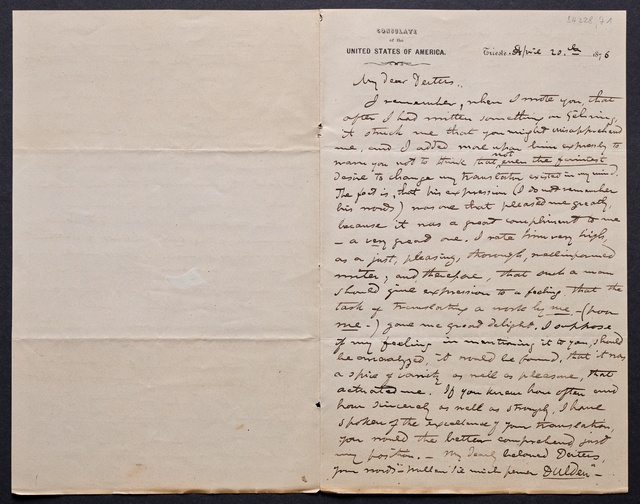 24228, 71
CONSULATE
of the
UNITED STATES OF AMERICA.
Trieste, April 20th 1876
My dear Deiters,
I remember, when I wrote you, that
after I had written something on Gehring,
it struck me that you might misapprehend
me, and I added more upon him expressly to
warn you not to think that not even the faintest
desire to change my translator existed in my mind.
The fact is, that his expression (I do not remember
his words) was one that pleased me greatly,
because it was a great compliment to me
— a very great one. I rate him very high,
as a just, pleasing, thorough, well informed
writer; and, therefore, that such a man
should give expression to a feeling that the
task of translating a work by me — (poor
me —) gave me great delight. I suppose
if my feeling in mentioning it to you, should
be analyzed, it would be found, that it was
a spice of vanity as well as pleasure, that
actuated me. If you knew how often and
how sincerely as well as strongly, I have
spoken of the excellence of your translation,
you would the better comprehend just
my position. — My dearly beloved Deiters,
your words "wollen Sie mich ferner Dulden" —